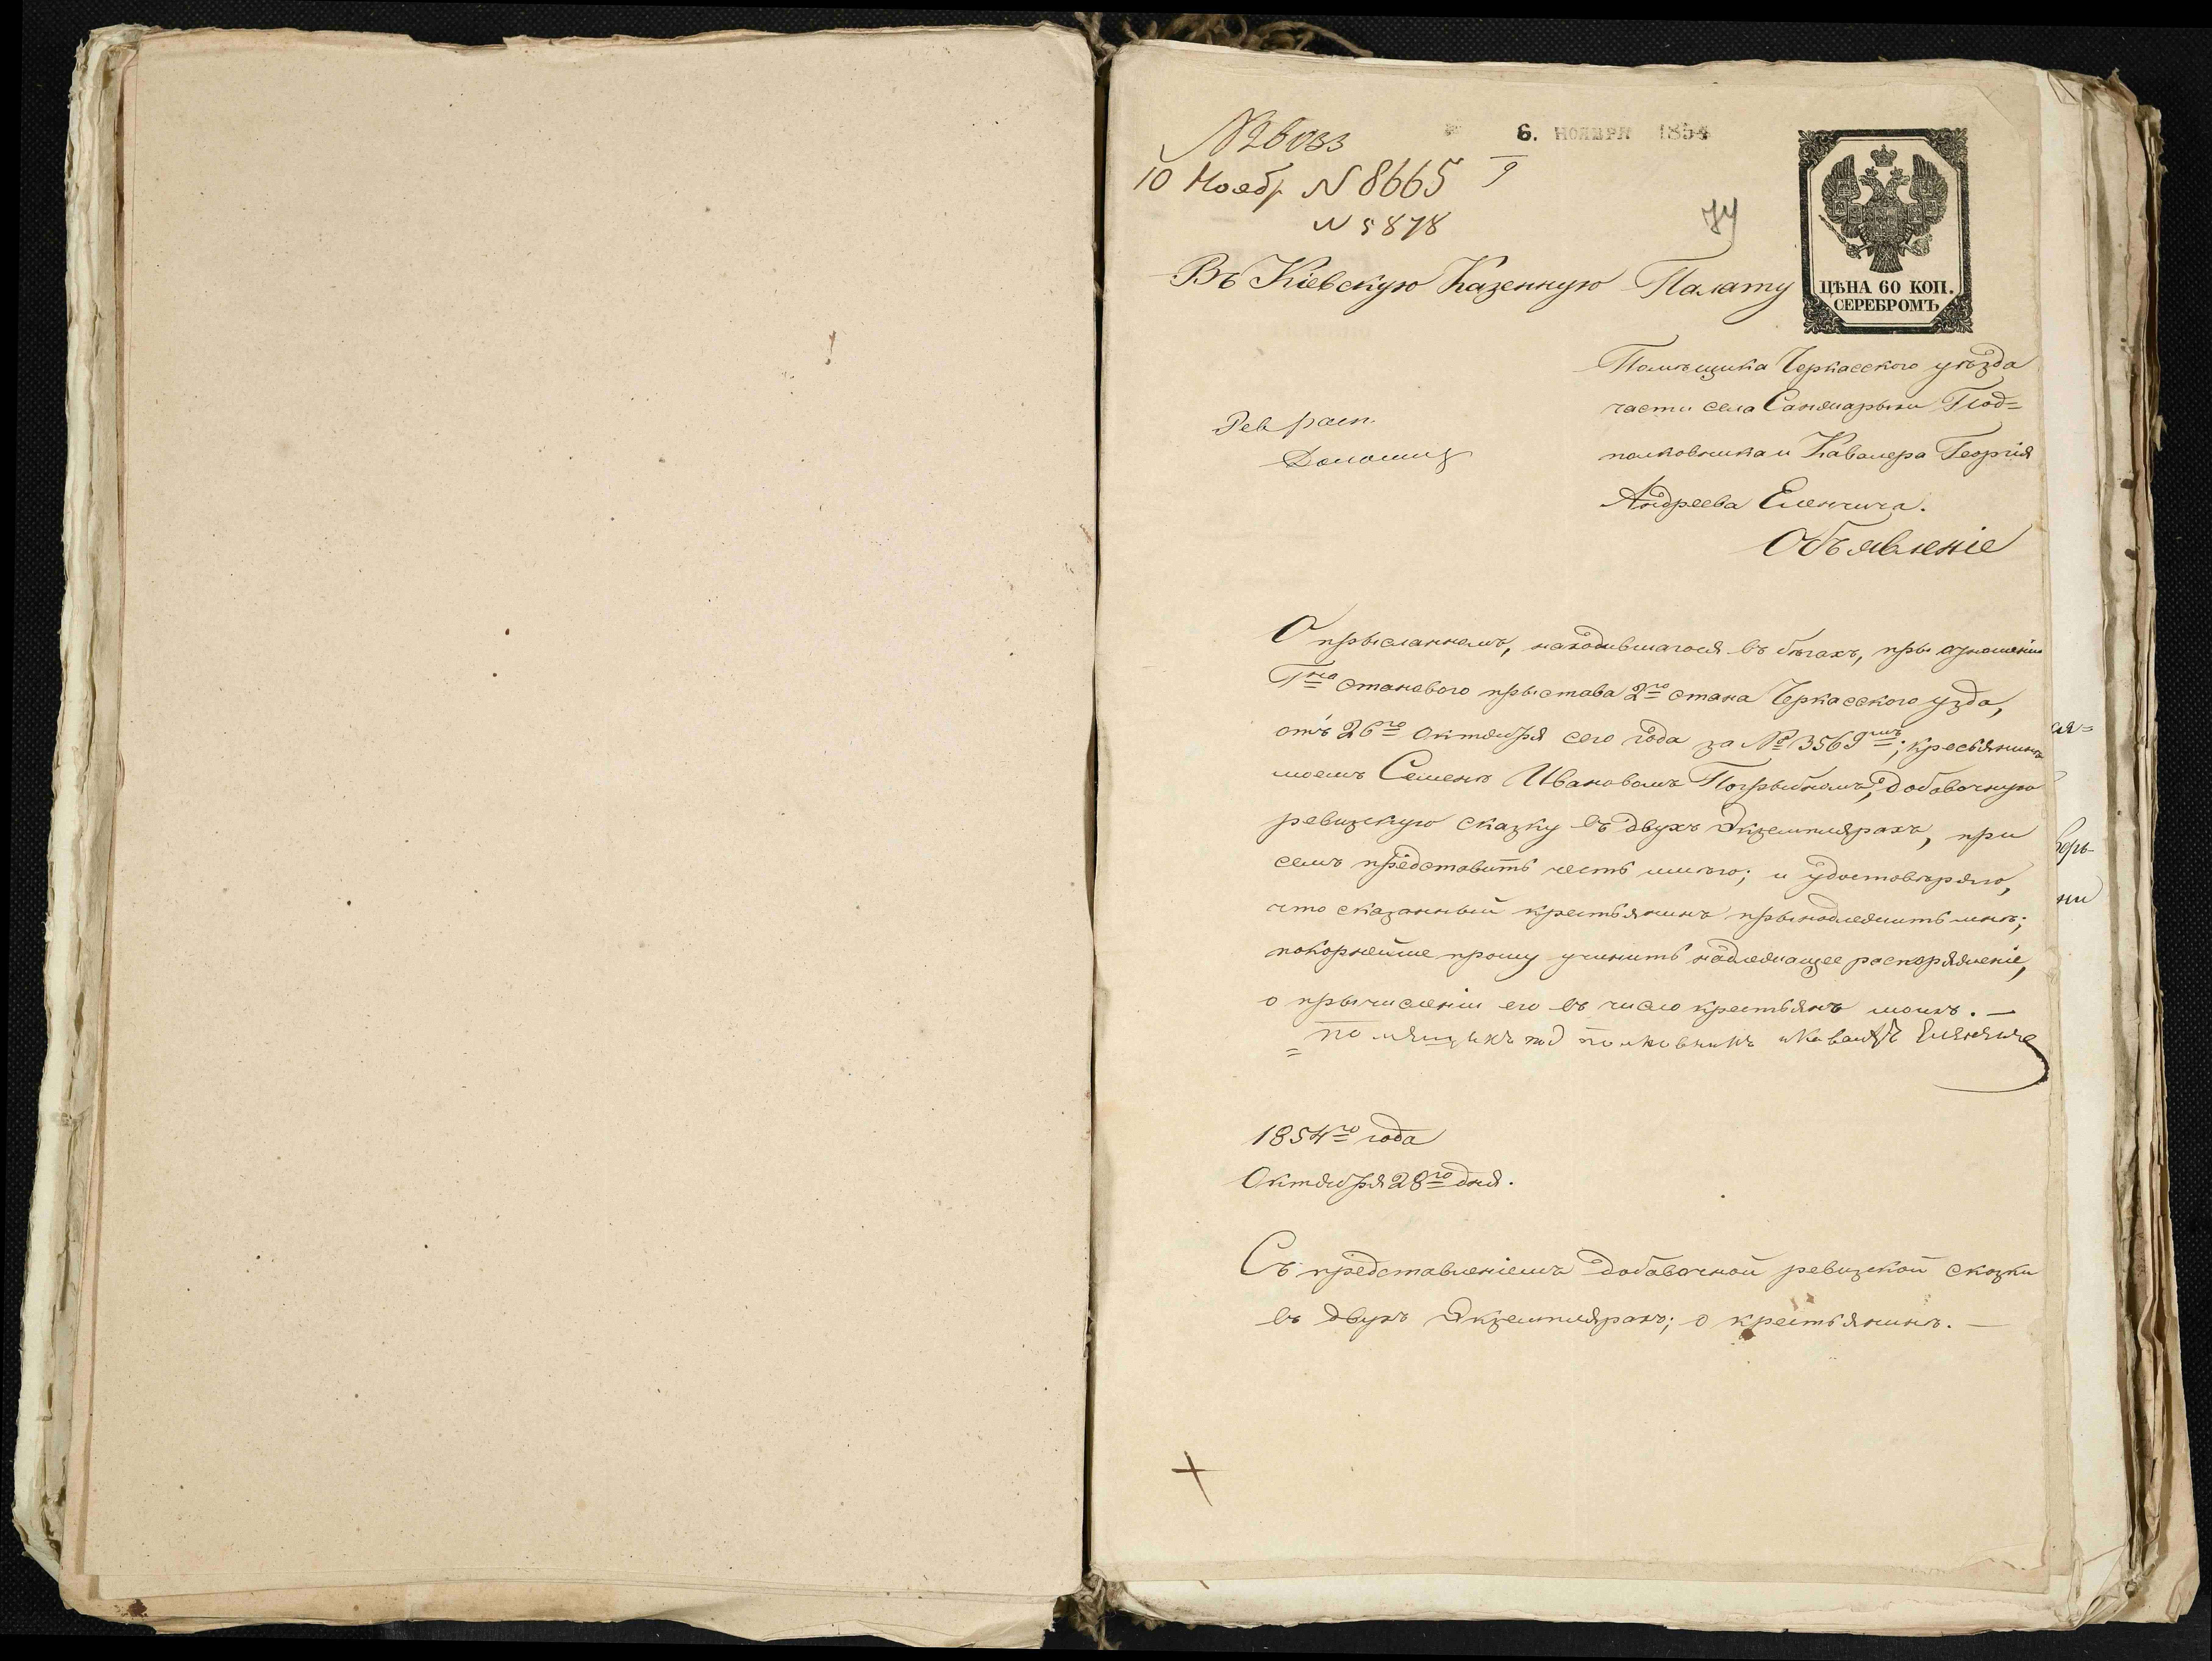 6. НОЯБРЯ 1854
9
10 Ноябр N 8665
N 5878
74
Въ Кіевскую Казенную Палату
ЦѢНА 60 КОП.
СЕРЕБРОМЪ
Помѣщика Черкасского уѣзда
части села Сантарыки Под=
полковника и Кавалера Георгія
Андреева Еленича.
Рев расп.
Объявленіе
О прысланномъ, находившагося въ бѣгахъ, пры отношеніи
Гна становаго прыстава 2го стана Черкасского узда,
отъ 26го Октября сего года за № 3569мъ; кресьянинѣ
моемъ Семенѣ Ивановомъ Погрыбномъ, добавочную
ревизскую сказку въ двухъ Экземплярахъ, при
семъ представить честь имѣю; и удостовѣряю,
что сказанный крестьянинъ прынадлежить мнѣ;
покорнейше прошу учинить надлежащее распоряженіе,
о прычисленіи его въ число крестьянъ моихъ. —
= помящикъ под полковникъ и Кавалѣръ
1854го года
Октября 28го дня.
Съ представленіемъ добавочной ревизкой сказки
въ двухъ Экземплярахъ; о крестьянинѣ. —
ся=
ни